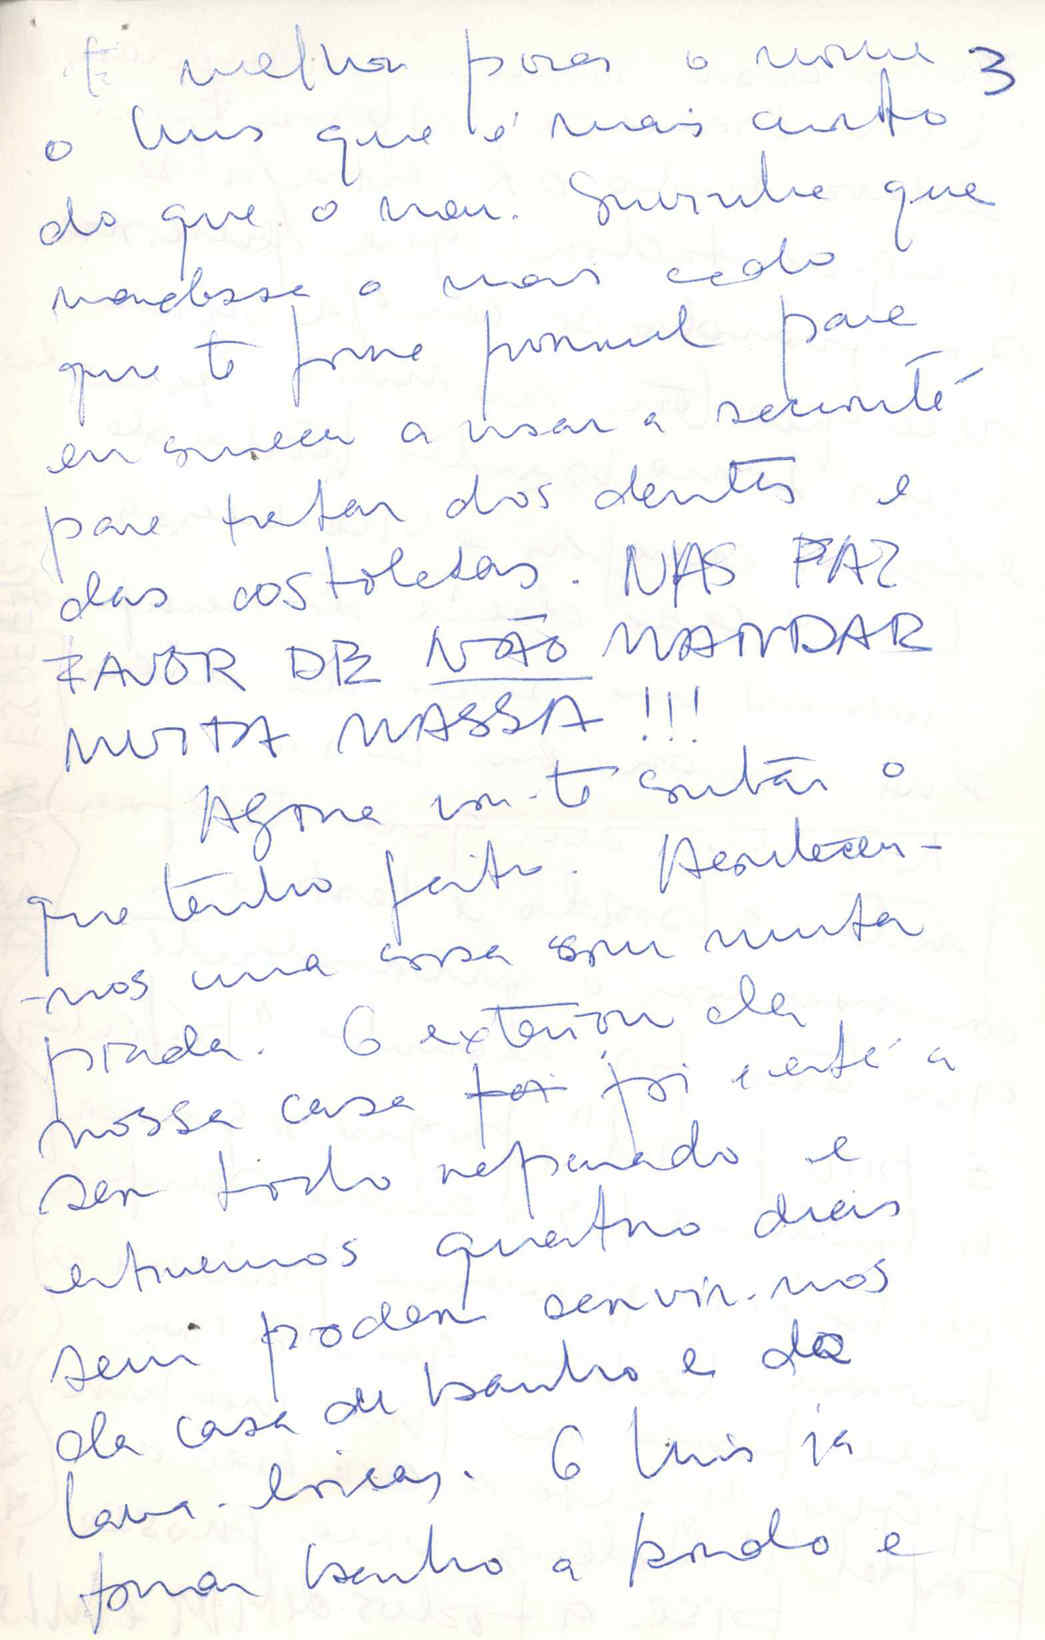 É melhor pores o nome 3
o Luis que é mais curto
do que o meu. Convinha que
mandasse o mais cedo
que te fosse possivel para
eu comecar a usar a securité
para tratar dos dentes e
das costoletas. MAS FAZ
FAVOR DE NÃO MANDAR
MUITA MASSA!!!
Agora vou-te contar o
que tenho feito. Aconteceu-
-nos uma coisa com muita
piada. O exterior da
nossa casa foi foi e está a
ser todo reparado e
estivemos quatro dias
sem poder servir-nos
da casa de banho e do
lava-loicas. O Luis ia
tomar banho a